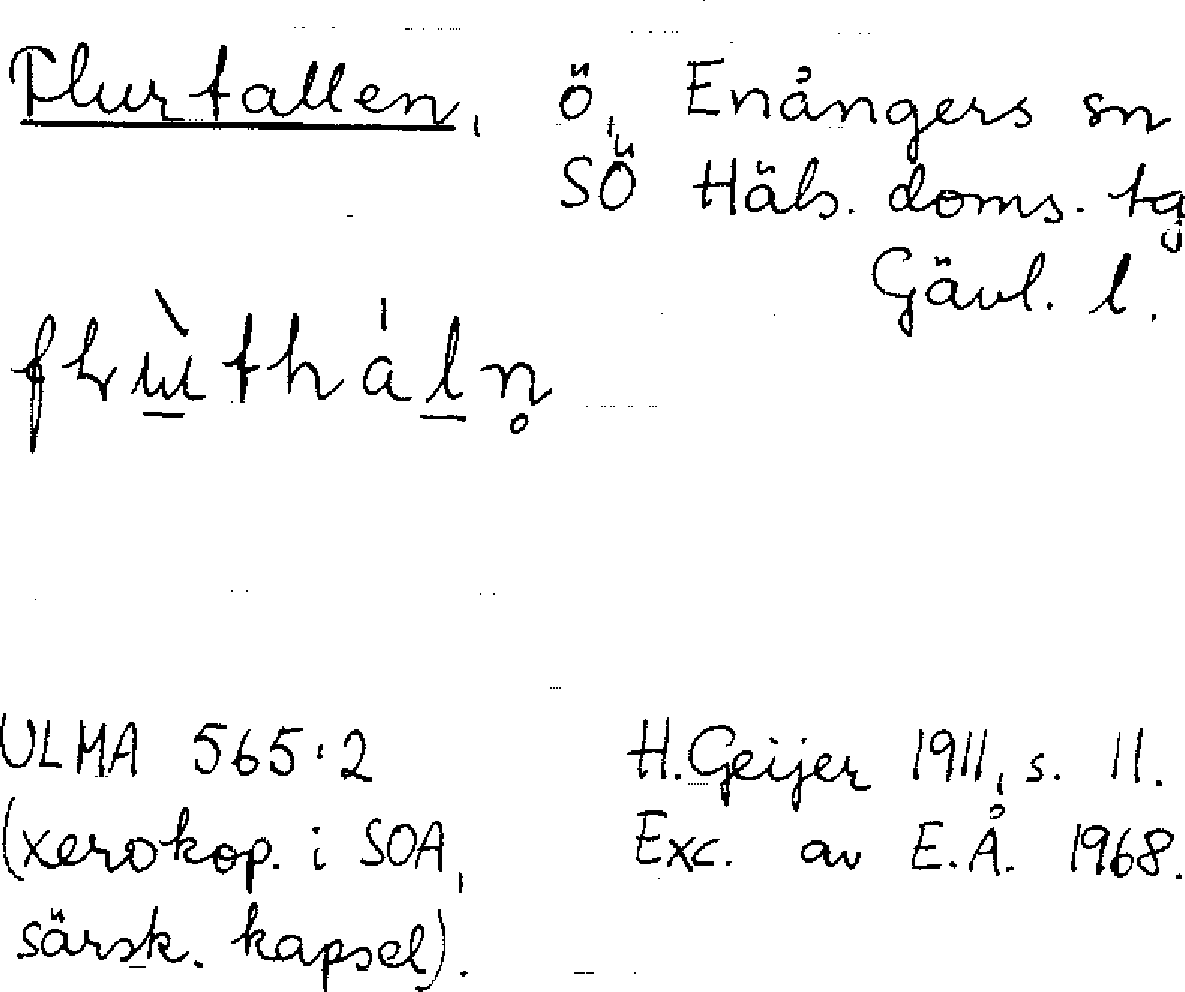 Flurtallen, ö, Enångers sn
SÖ Häls. doms. tg
Gävl. l.
ULMA 565:2
(xerokop. i SOA,
särsk. kapsel).
H. Geijer 1911, s. 11.
Exc. av E.Å. 1968.